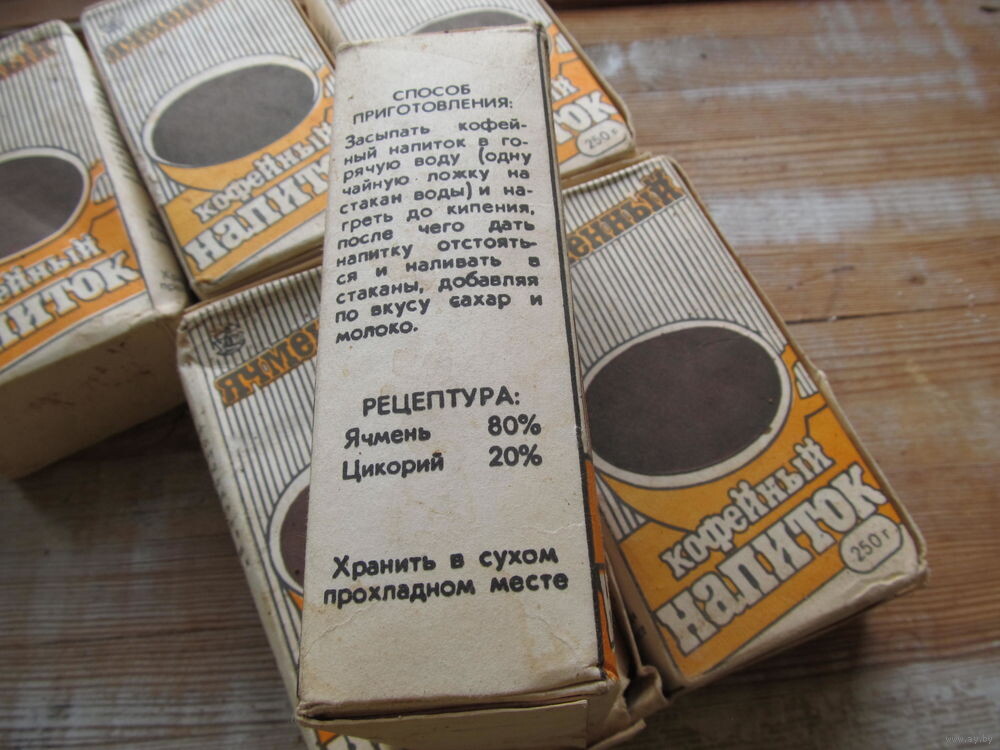 СПОСОБ
ПРИГОТОВЛЕНИЯ:
Засыпать кофей-
ный напиток в го-
рячую воду (одну
чайную ложку на
стакан воды) и на-
греть до кипения,
после чего дать
напитку отстоять-
ся и наливать в
стаканы, добавляя
по вкусу сахар и
молоко.
РЕЦЕПТУРА:
Ячмень 80%
Цикорий 20%
Хранить в сухом
прохладном месте
кофейный
напиток
250 г
кофейный
напиток
250 г
www.ay.by